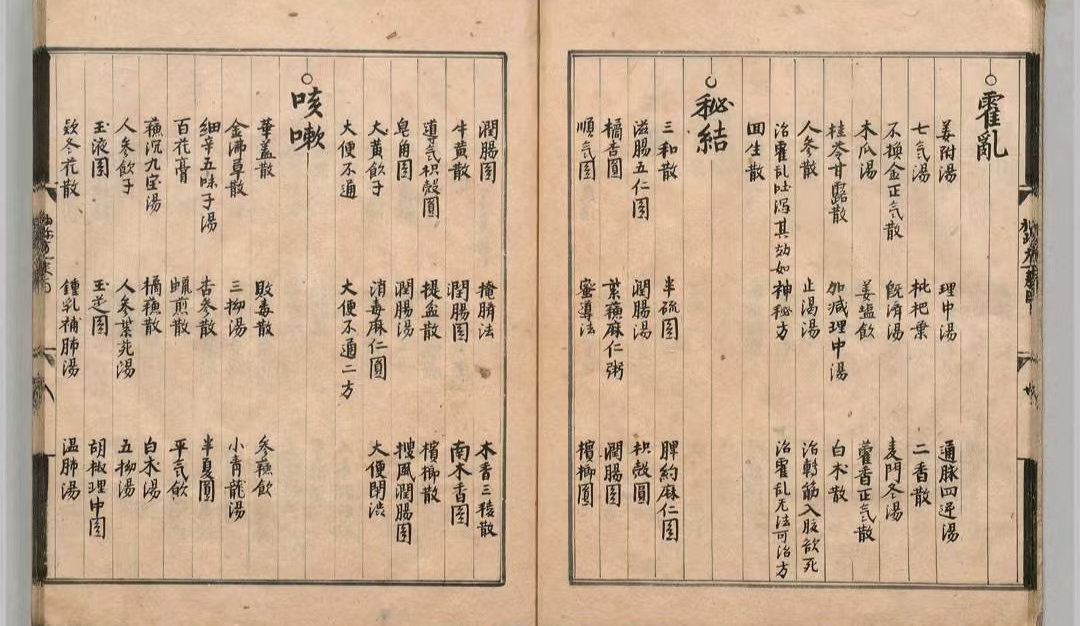 霍亂
姜附湯 理中湯 通脉四逆湯
七气湯 枇杷葉 二香散
不換金正气散 既濟湯 麦門冬湯
木瓜湯 姜鹽飲 藿香正气散
桂苓甘露散 加减理中湯 白术散
人參散 止渴湯 治轉筋入股欲死
治霍乱吐瀉其効如神秘方 治霍乱无法可治方
回生散
秘結
三和散 半硫圓 脾約麻仁圓
滋腸五仁圓 潤腸湯 枳殻圓
橘杏圓 蘇麻仁粥 潤腸圓
順气圓 蜜導法 檳榔圓
潤腸圓 掩臍法 木香三稜散
牛黄散 潤腸圓 南木香圓
導气枳殻圓 提盆散 檳榔散
皂角圓 潤腸湯 搜風潤腸圓
大黄飲子 消毒麻仁圓 大便閉渋
大便不通 大便不通二方
咳嗽
華蓋散 敗毒散 參蘇飲
金沸草散 三拗湯 小青龍湯
細辛五味子湯 杏參散 半夏圓
百花膏 蝋煎散 平气飲
蘇沉九宝湯 橘蘇散 白术湯
人參飲子 人參紫苑湯 五拗湯
玉液圓 玉芝圓 胡椒理中圓
欵冬花散 鍾乳補肺湯 温肺湯